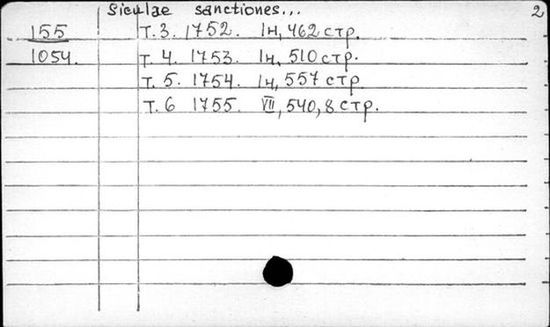 Siculae sanctiones... 2
155 Т. 3. 1752. Iн, 462 стр.
1054. Т. 4. 1753. Iн, 510 стр.
Т. 5. 1754. Iн, 557 стр
Т. 6 1755. VIII, 540, 8 стр.